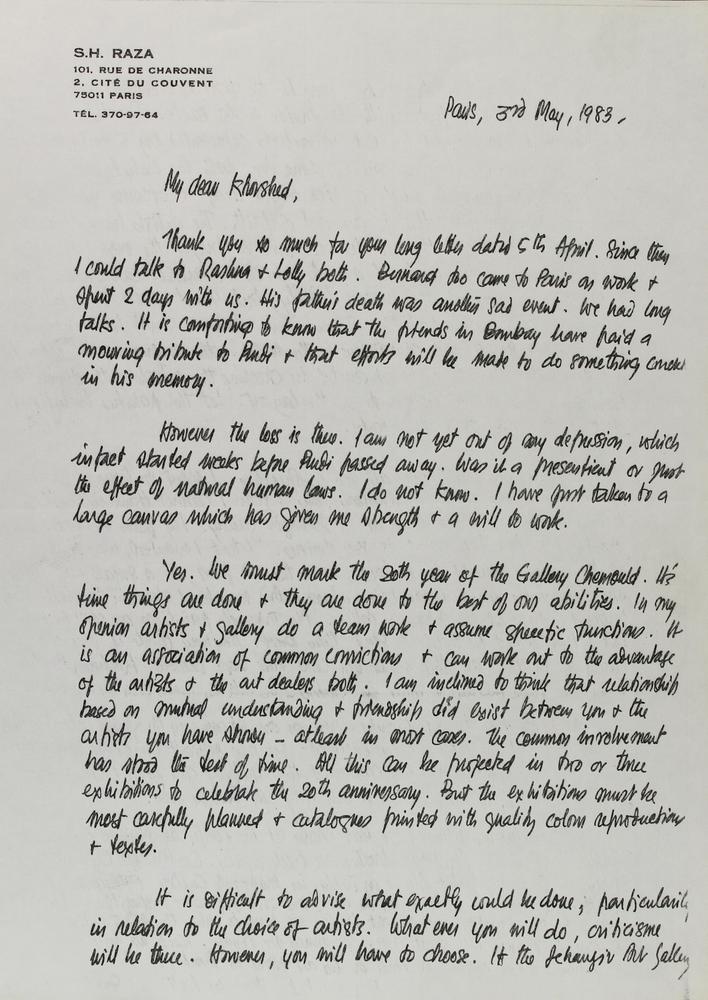 S.H. RAZA
101, RUE DE CHARONNE
2, CITÉ DU COUVENT
75011 PARIS
TÉL. 370-97-64
Paris, 3rd May, 1983.
My dear Khorshed,
Thank you so much for your long letter dated 5th April. Since then
I could talk to Rashna & Lolly both. Bernard too came to Paris on work &
spent 2 days with us. His father's death was another sad event. We had long
talks. It is comforting to know that the friends in Bombay have paid a
mouving tribute to Pudi & that efforts will be made to do something
in his memory.
However the loss is there. I am not yet out of my depression, which
infact started weeks before Pudi passed away. Was it a presentient or just
the effect of natural human laws. I do not know. I have just taken to a
large canvas which has given me strength & a will to work.
Yes. We must mark the 20th year of the Gallery Chemould. It's
time things are done & they are done to the best of our abilities. In my
openion artists & gallery do a team work & assume specific functions. It
is an association of common convictions & can work out to the advantage
of the artists & the art dealers both. I am inclined to think that relationship
based on mutual understanding & friendship did exist between you & the
artists you have shown – atleast in most cases. The common involvement
has stood the test of time. All this can be projected in two or three
exhibitions to celebrate the 20th anniversary. But the exhibitions must be
most carefully planned & catalogues printed with quality colour reproductions
& textes.
It is difficult to advise what exactly could be done, particularly
in relation to the choice of artists. What ever you will do, criticisme
will be there. However, you will have to choose. If the Jehangir Art Gallery